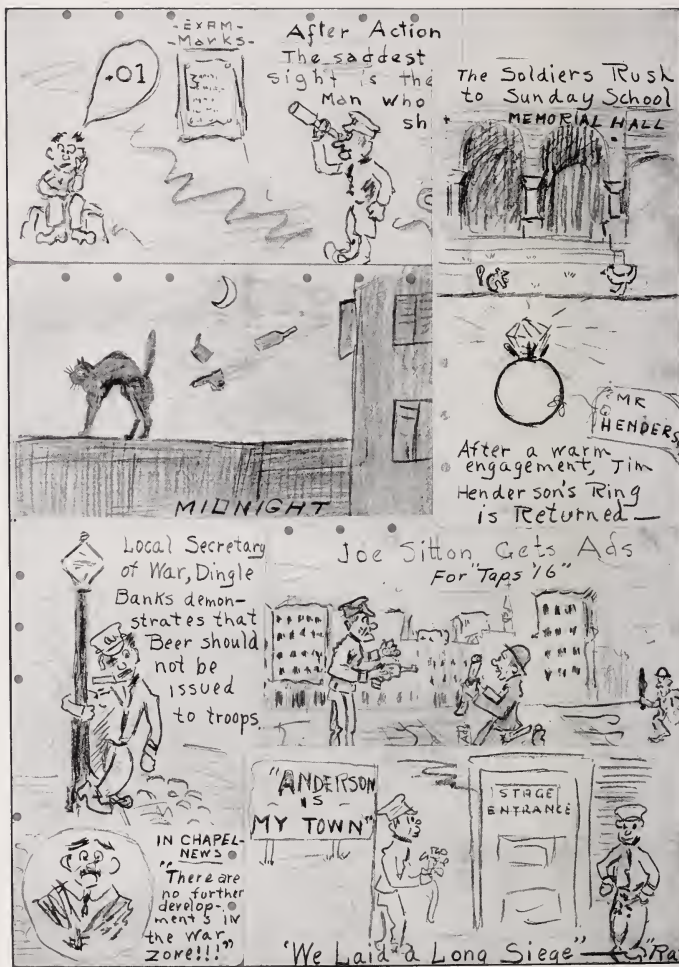 .01
-EXAM-
-Marks-
After Action
The saddest
sight is the
Man who
sh
The Soldiers Rush
to Sunday School
MEMORIAL HALL
MIDNIGHT
MR
HENDERS
After a warm
engagement, Jim
Henderson's Ring
is Returned—
Local Secretary
of War, Dingle
Banks demon-
strates that
Beer should
not be
issued
to troops.
Joe Sitton Gets Ads
For "Taps '16"
IN CHAPEL-
NEWS
"There are
no further
develop-
ments IN
the War
Zone!!!"
"ANDERSON
IS
MY TOWN"
STAGE
ENTRANCE
"We Laid a Long Siege"— "Ra